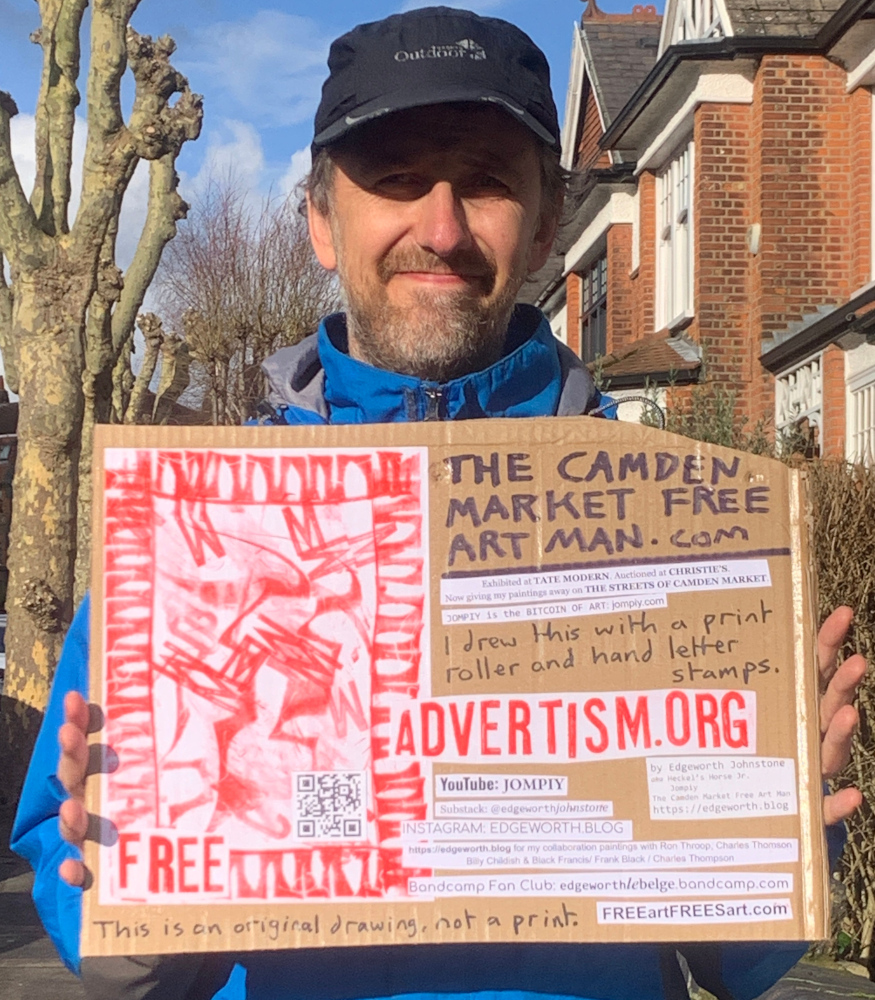 Outdoor
THE CAMDEN
MARKET FREE
ART MAN.com
Exhibited at TATE MODERN. Auctioned at CHRISTIE'S.
Now giving my paintings away on THE STREETS OF CAMDEN MARKET.
JOMPIY is the BITCOIN OF ART: jompiy.com
I drew this with a print
roller and hand letter
stamps.
ADVERTISM.ORG
by Edgeworth Johnstone
aka Heckel's Horse Jr.
Jompiy
The Camden Market Free Art Man
https://edgeworth.blog
YouTube: JOMPIY
Substack: @edgeworthjohnstone
INSTAGRAM: EDGEWORTH.BLOG
https://edgeworth.blog for my collaboration paintings with Ron Throop, Charles Thomson
Billy Childish & Black Francis/ Frank Black / Charles Thompson
Bandcamp Fan Club: edgeworthlebelge.bandcamp.com
FREEartFREESart.com
FREE
This is an original drawing, not a print.